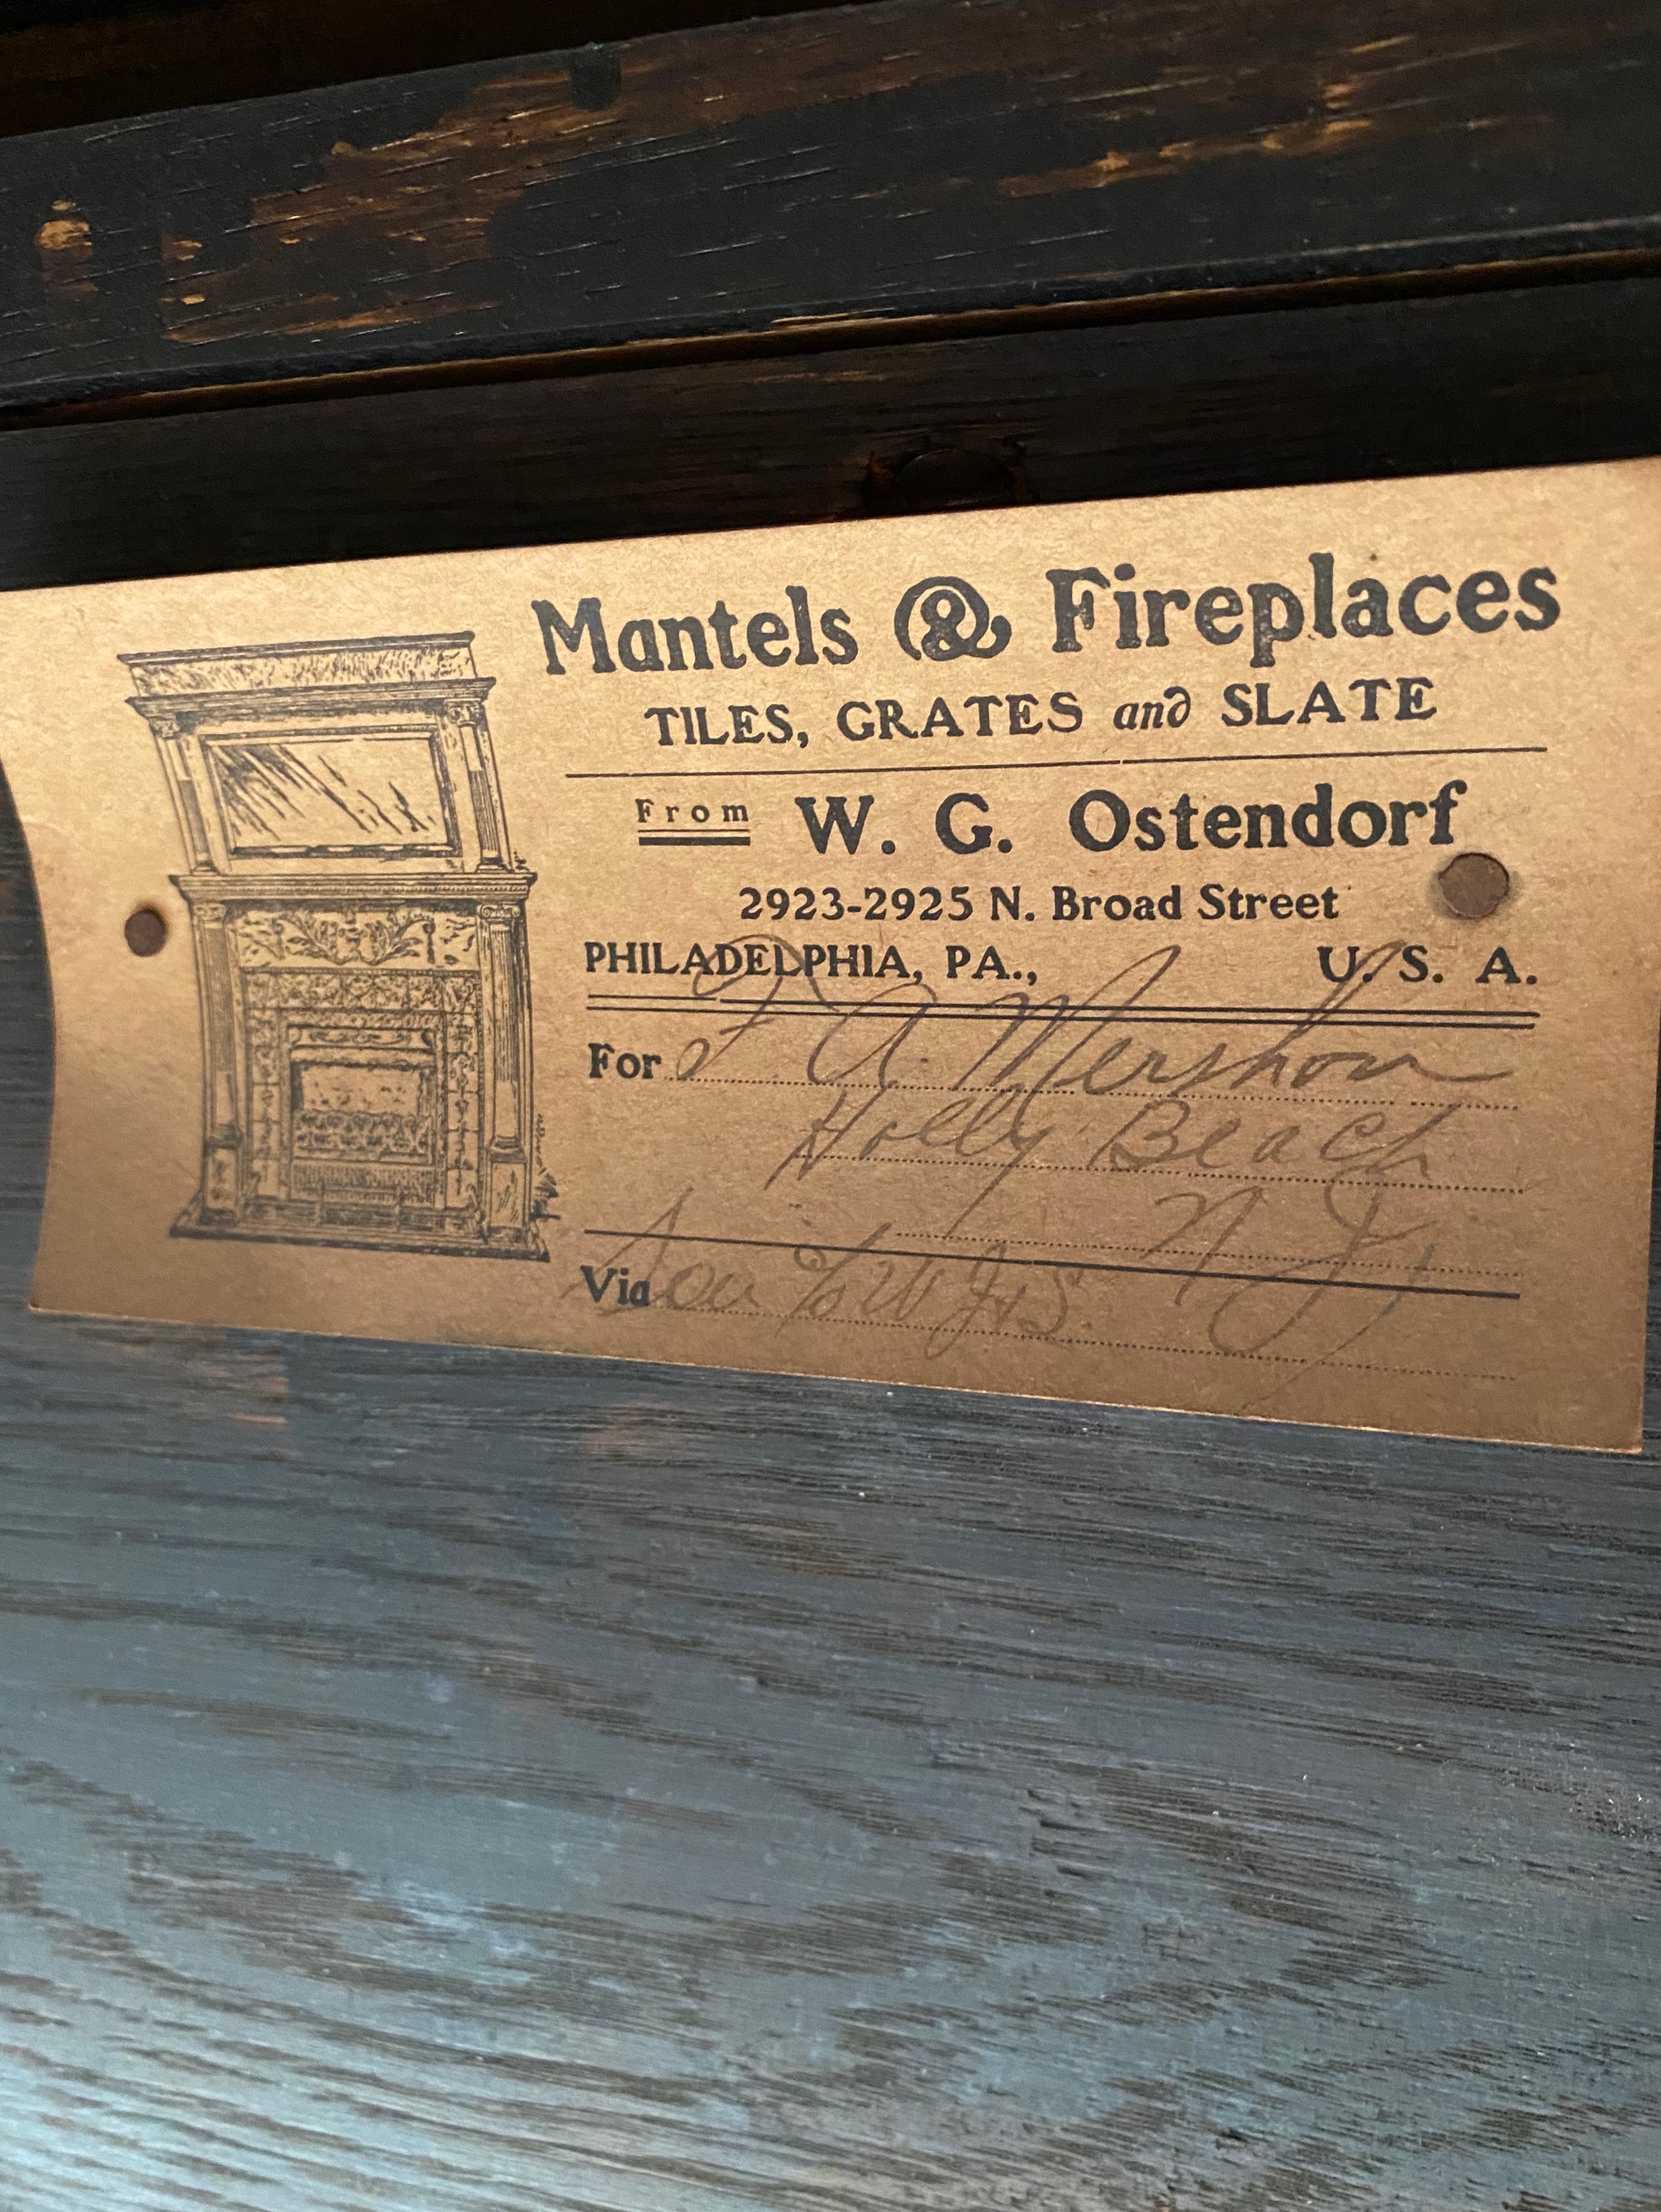 Mantels & Fireplaces
TILES, GRATES and SLATE
From W. G. Ostendorf
2923-2925 N. Broad Street
PHILADELPHIA, PA., U. S. A.
For A. Mershon
Holly Beach
N J
Via